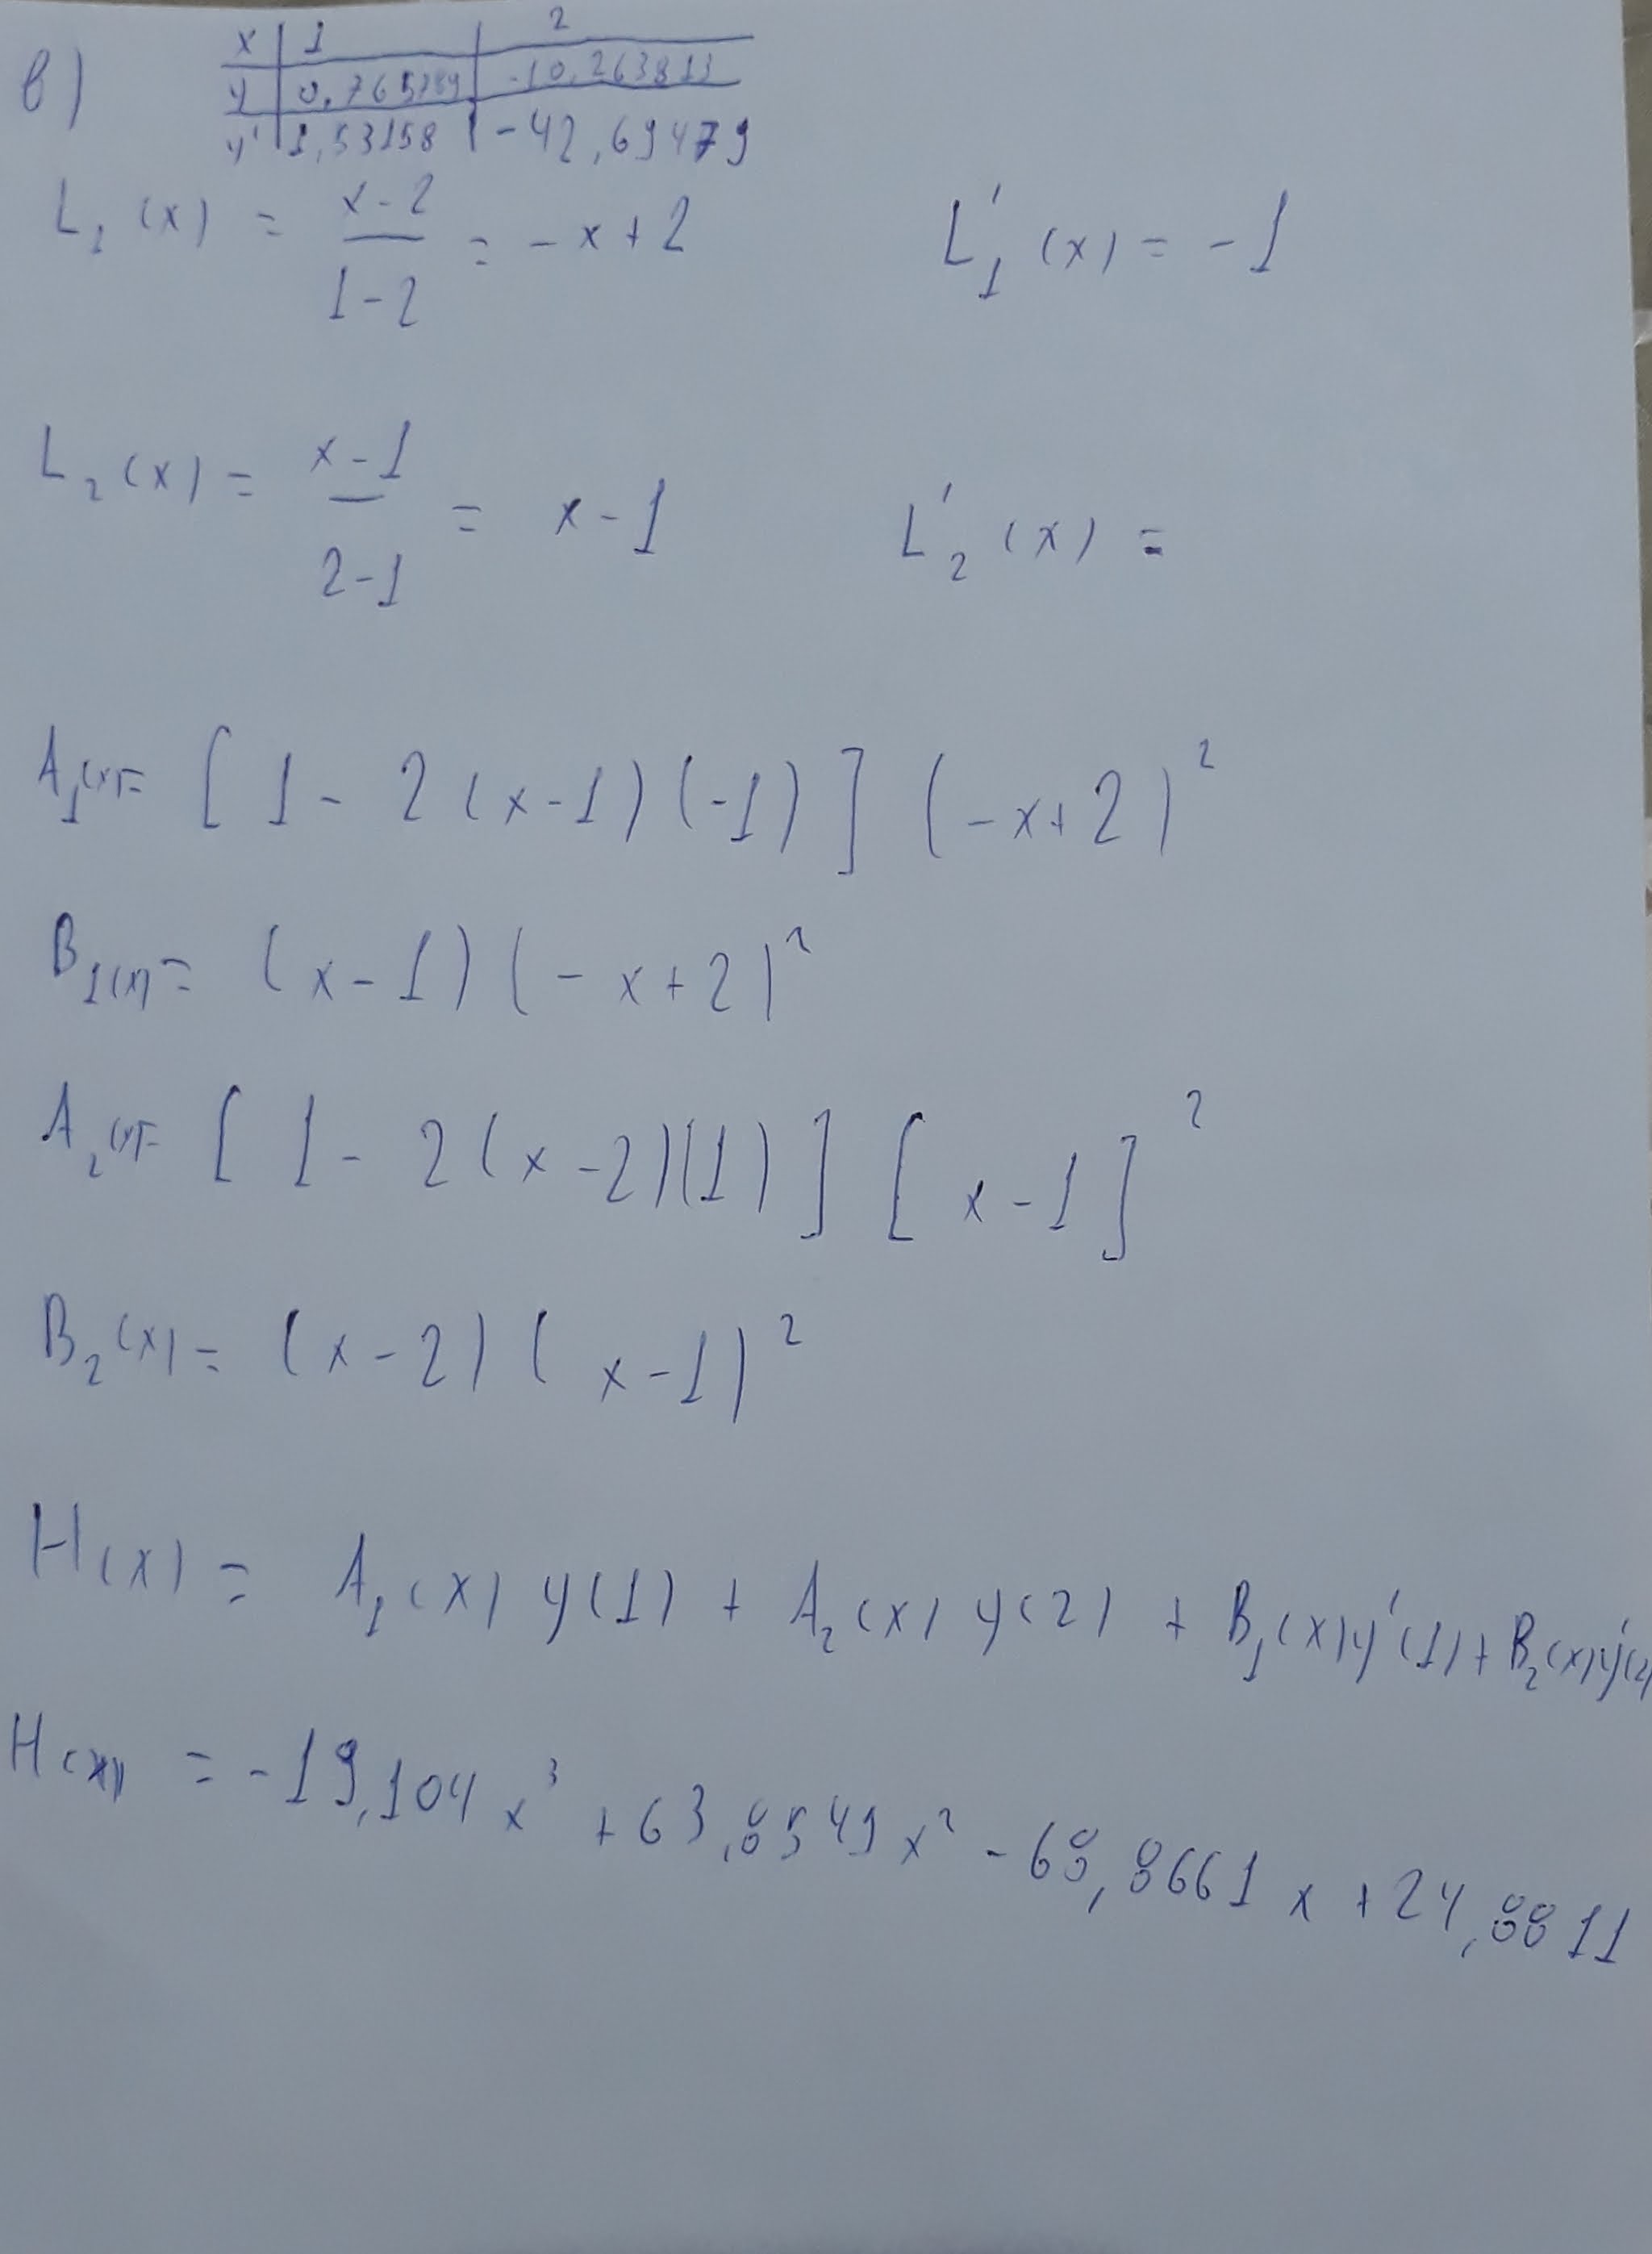 в)
x | 1 | 2
y | 0,765789 | -10,263811
y' | 1,53158 | -42,69479
L₁(x) = (x-2)/(1-2) = -x+2 L'₁(x) = -1
L₂(x) = (x-1)/(2-1) = x-1 L'₂(x) =
A₁(x)= [1-2(x-1)(-1)] (-x+2)²
B₁(x)= (x-1)(-x+2)²
A₂(x)= [1-2(x-2)(1)] [x-1]²
B₂(x)= (x-2)(x-1)²
H(x) = A₁(x) y(1) + A₂(x) y(2) + B₁(x)y'(1)+B₂(x)y'(2)
H(x) = -19,104x³ + 63,8549x² - 68,8661x + 24,8811